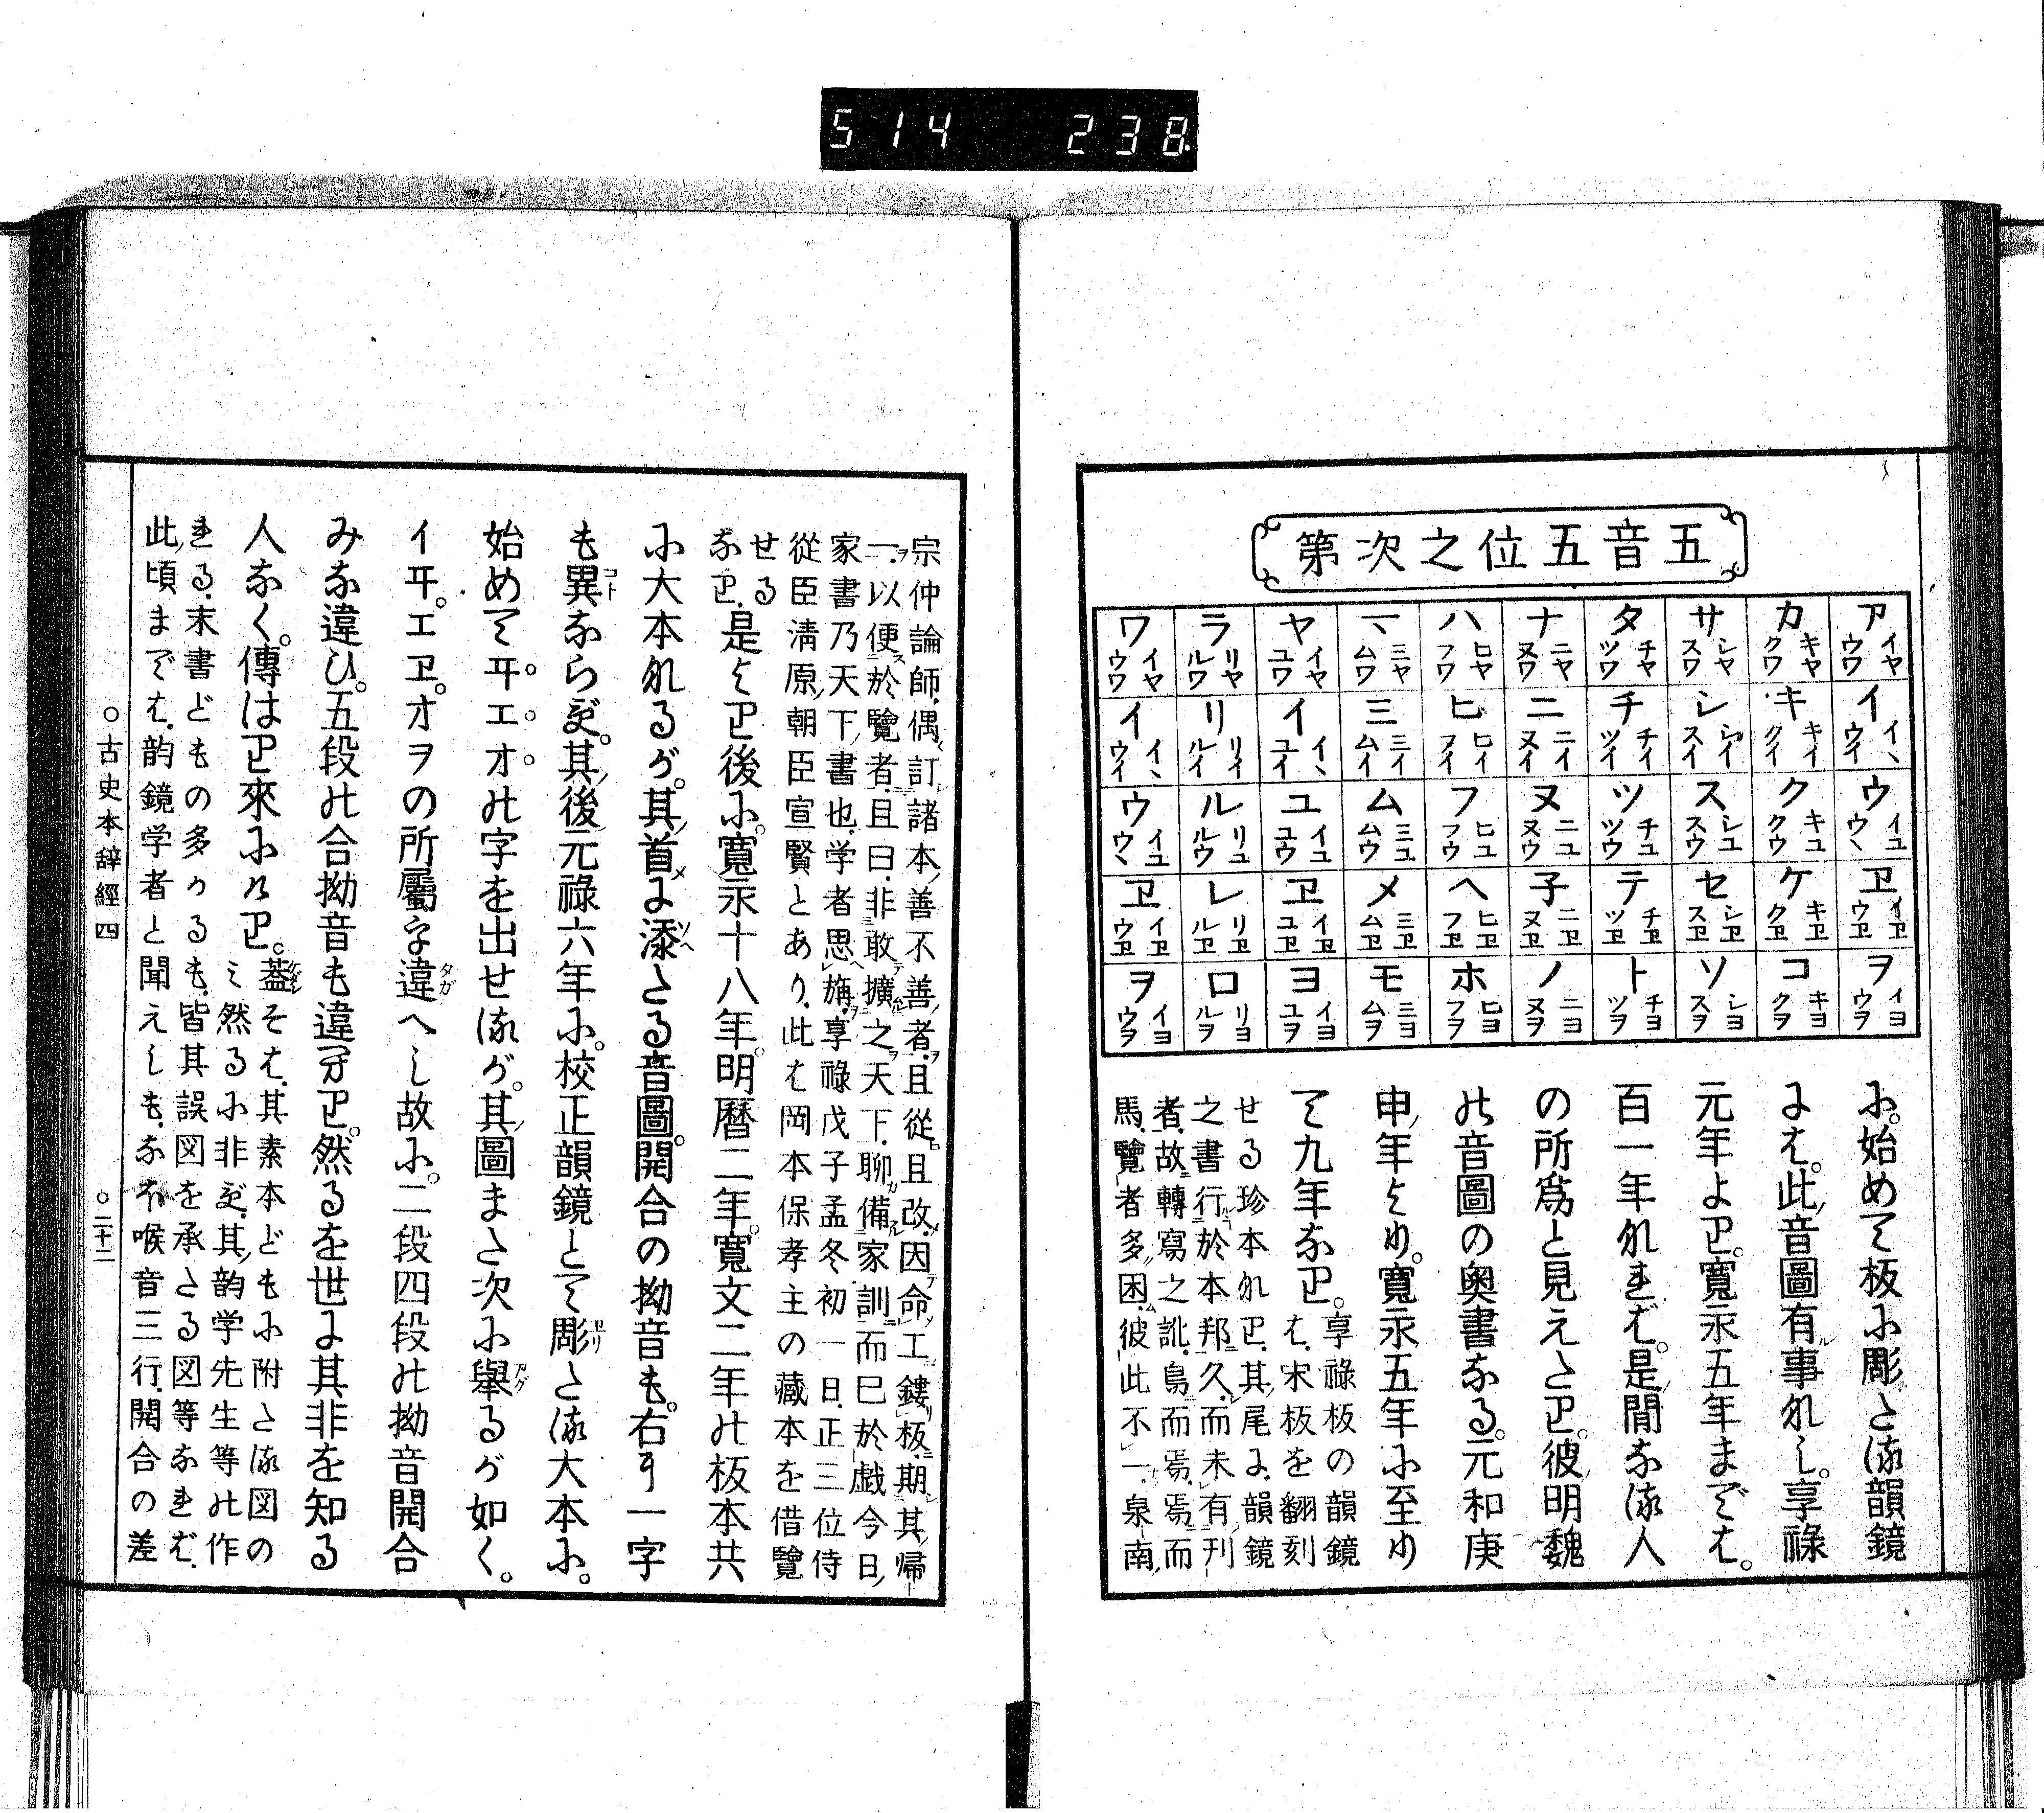 五音五位之次第
ア イヤ ウワ
カ キヤ クワ
サ シヤ スワ
タ チヤ ツワ
ナ ニヤ ヌワ
ハ ヒヤ フワ
マ ミヤ ムワ
ヤ イヤ ユワ
ラ リヤ ルワ
ワ イヤ ウワ
イ イヽ ウイ
キ キイ クイ
シ シイ スイ
チ チイ ツイ
ニ ニイ ヌイ
ヒ ヒイ フイ
ミ ミイ ムイ
イ イヽ ユイ
リ リイ ルイ
イ イヽ ウイ
ウ イユ ウヽ
ク キユ クウ
ス シユ スウ
ツ チユ ツウ
ヌ ニユ ヌウ
フ ヒユ フウ
ム ミユ ムウ
ユ イユ ユウ
ル リユ ルウ
ウ イユ ウヽ
ヱ イヱ ウヱ
ケ キヱ クヱ
セ シヱ スヱ
テ チヱ ツヱ
子 ニヱ ヌヱ
ヘ ヒヱ フヱ
メ ミヱ ムヱ
ヱ イヱ ユヱ
レ リヱ ルヱ
ヱ イヱ ウヱ
ヲ イヨ ウヲ
コ キヨ クヲ
ソ シヨ スヲ
ト チヨ ツヲ
ノ ニヨ ヌヲ
ホ ヒヨ フヲ
モ ミヨ ムヲ
ヨ イヨ ユヲ
ロ リヨ ルヲ
ヲ イヨ ウヲ
に。始めて板に彫たる韻鏡
よは。此ノ音圖有ル事なし。享祿
元年より。寛永五年までは。
百一年なれば。是ノ間なる人
の所爲と見えたり。彼ノ明魏
の音圖の奥書なる。元和庚
申ノ年より。寛永五年に至り
て九年なり。享祿板の韻鏡
は、宋板を翻刻
せる珍本なり、其ノ尾よ、韻鏡
之書行於本邦久、而未有刊
者、故轉寫之訛、烏而焉、焉而
馬、覽者多困、彼此不一、泉南
宗仲論師、偶訂諸本、善不善者、且從且改、因命工鏤板、期其歸
一、以便於覽者、且曰、非敢擴之天下、聊備家訓而已、於戯今日
家書乃天下書也、学者思旃、享祿戊子孟冬初一日、正三位侍
從臣淸原朝臣宣賢とあり、此は岡本保孝主の藏本を借覽
せる
なり、是より後に。寛永十八年。明暦二年。寛文二年の板本共
に大本なるが。其ノ首メよ添ヘたる音圖。開合の拗音も。右ト一字
も異ならず。其ノ後元祿六年に。校正韻鏡とて彫リたる大本に。
始めてヰ。エ。オ。の字を出せるが。其ノ圖また次に擧アグるが如く。
イヰ。エヱ。オヲの所屬を違タガへし故に。二段四段の拗音開合
みな違ひ。五段の合拗音も違へり。然るを世よ其非を知る
人なく。傳はり來になり。蓋ケダシそは、其素本どもに附たる図の
み然るに非ず、其ノ韵学先生等の作
れる、末書どもの多かるも、皆其誤図を承たる図等なれば、
此ノ頃までは、韵鏡学者と聞えしも、なほ喉音三行、開合の差
○古史本辭經四
○二十二
514 238